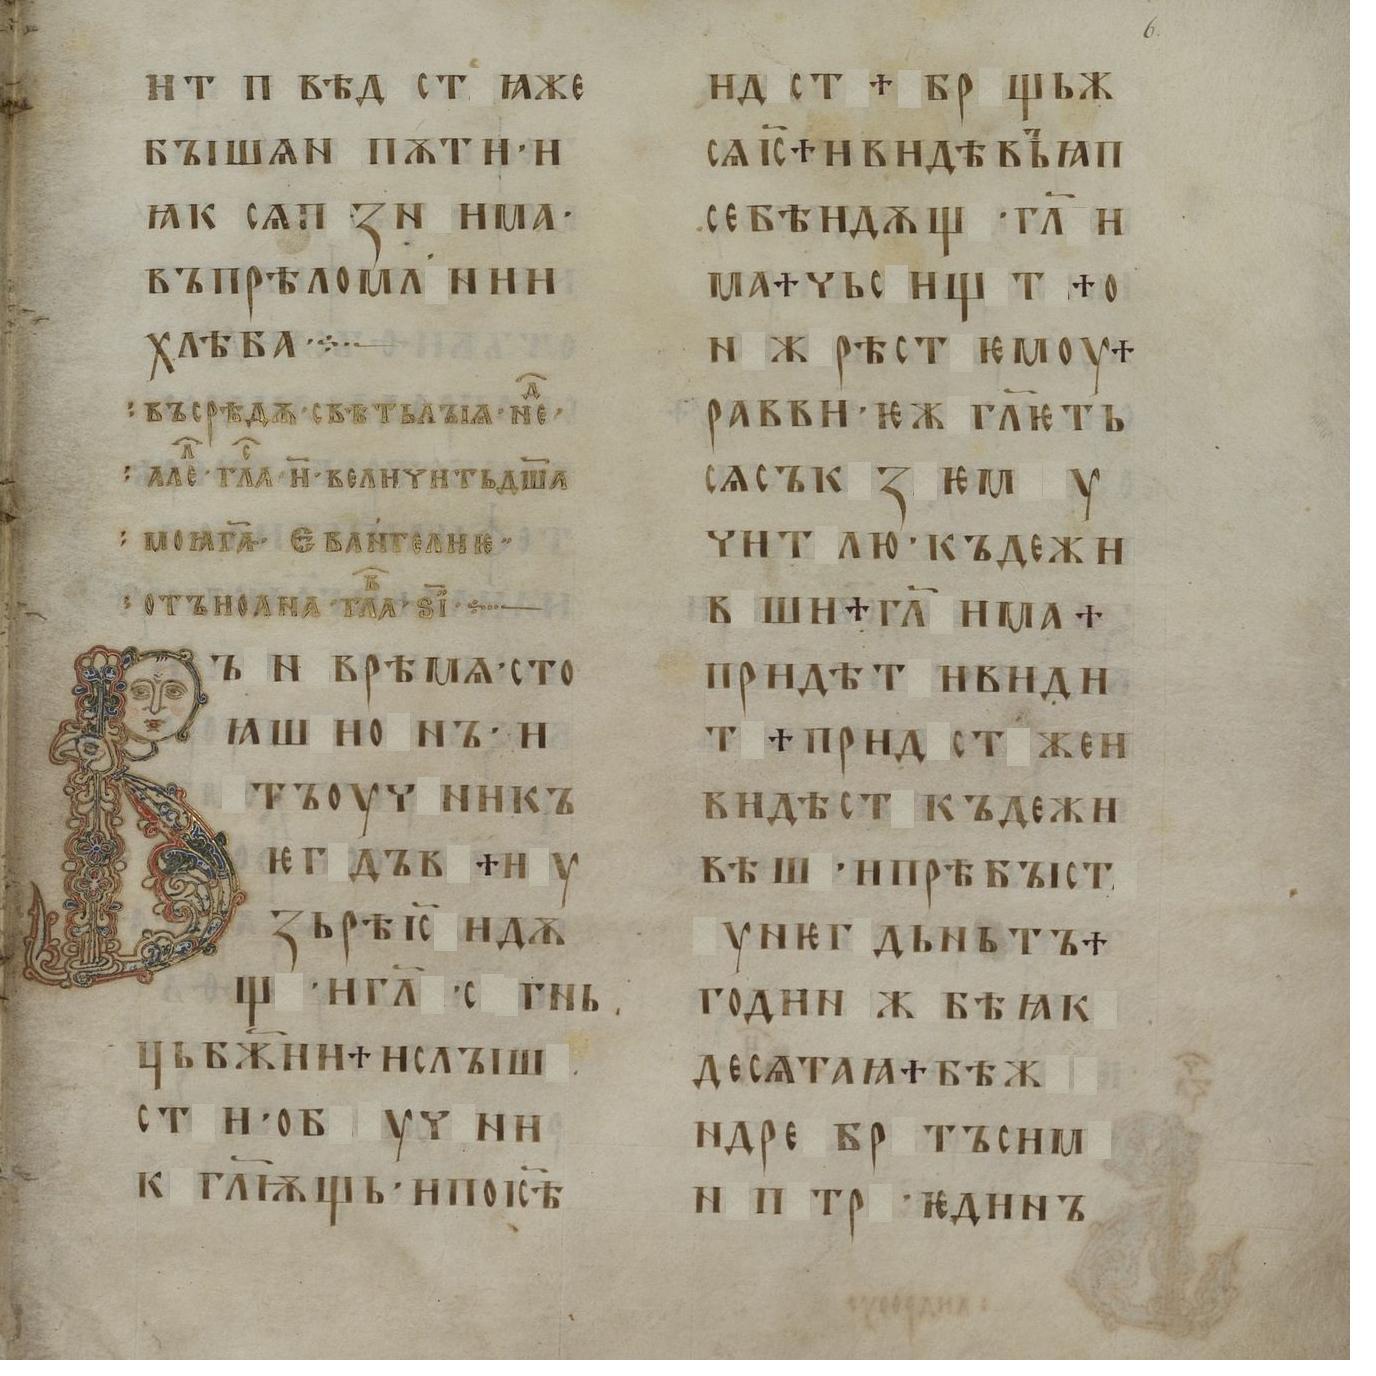 ит п вѣд ст ꙗже
бꙑшѧн пѫти·и
ꙗк сѧп ꙁн има·
въпрѣломл нии
хлѣба·
въсрѣдѫ·свѣтьлꙑѩ·неⷣ·
алеⷧ·глаⷭ·н҃·величитьдш҃а
моꙗга҃· Еваⷩгелиѥ·
отъиоана·глаⷡ·ѕ҃ı·
ъ н врѣмѧ·сто
ꙗш ио нъ· и
тъоуч никъ
ѥг дъв +и у
ꙁьрѣıс҃ идѫ
щ ·игл҃ ·с гнь
цьбж҃ии+ислꙑш
ст и·об уч ни
к гл҃ѭщь·ипоıс҃ѣ
ид ст + бр щьж
сѧıс҃+ивидѣвъ꙼ꙗп
себѣидѫщ ·гл҃ и
ма+чьс ищ т +о
н ж рѣст ѥмоу+
равви·ѥж гл҃ѥть
сѧсък ꙁ ѥм у
чит лю·къдежи
в ши+гл҃ има+
придѣт ивиди
т +прид ст жеи
видѣст къдежи
вѣш ·ипрѣбꙑст
унѥг дьньтъ+
годин ж бѣꙗк
десѧтаꙗ+бѣж
ндре бр тъсим
н п тр ·ѥдинъ